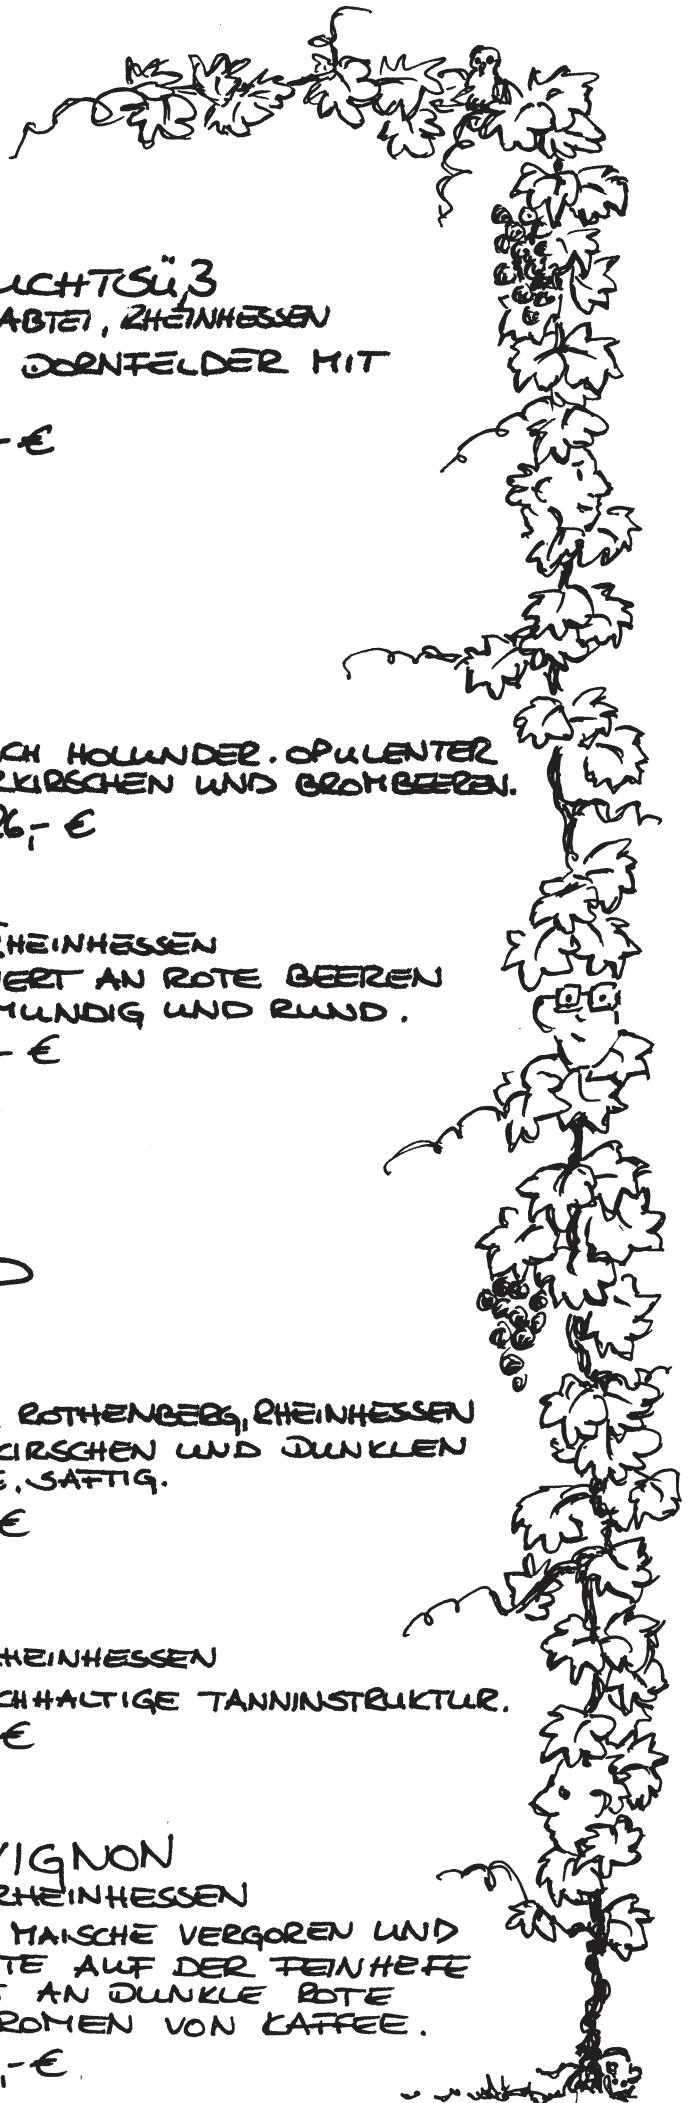 UCHTSÜß
ABTEI, RHEINHESSEN
DORNFELDER MIT
- €
CH HOLUNDER. OPULENTER
RKIRSCHEN UND BROMBEEREN.
26,- €
RHEINHESSEN
IERT AN ROTE BEEREN
MUNDIG UND RUND.
- €
ROTHENBERG, RHEINHESSEN
KIRSCHEN UND DUNKLEN
E, SAFTIG.
€
HEINHESSEN
CHHALTIGE TANNINSTRUKTUR.
€
VIGNON
RHEINHESSEN
MAISCHE VERGOREN UND
TE AUF DER FEINHEFE
T AN DUNKLE ROTE
ROMEN VON KAFFEE.
,- €